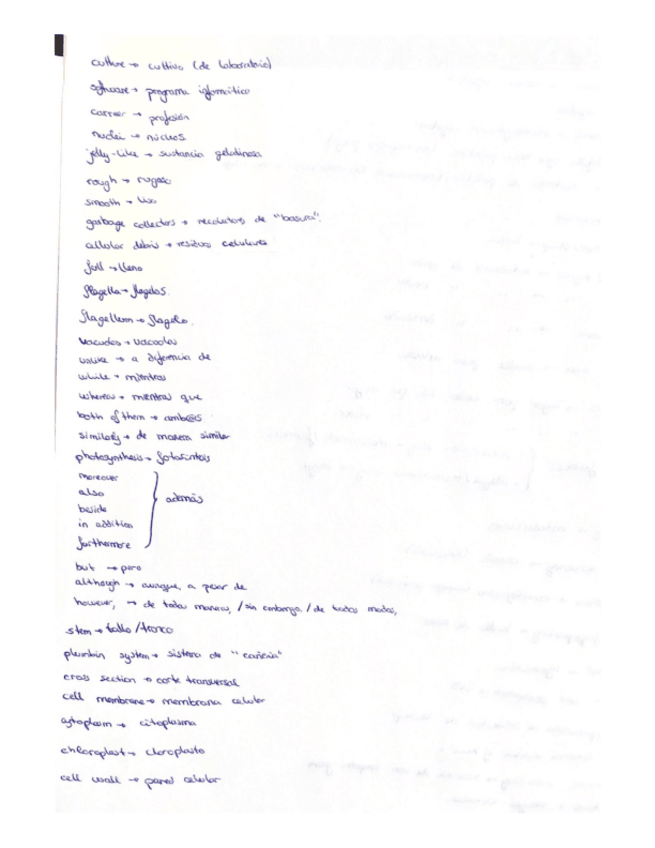 culture → cultivo (de laboratorio)
software → programa informático
carreer → profesión
nuclei → núcleos
jelly-like → sustancia gelatinosa
rough → rugoso
smooth → liso
garbage collectors → recolectores de "basura".
cellular debris → residuos celulares
full → lleno
flagella → flagelos.
flagellum → flagelo.
vacuoles → vacuolas
unlike → a diferencia de
while → mientras
whereas → mientras que
both of them → amb@s
similarly → de manera similar
photosynthesis → fotosíntesis
moreover
also
beside
in addition
furthermore
} además
but → pero
although → aunque, a pesar de
however, → de todas maneras, / sin embargo, / de todos modos,
stem → tallo / tronco
plumbin system → sistema de "cañería"
cross section → corte transversal
cell membrane → membrana celular
cytoplasm → citoplasma
chloroplast → cloroplasto
cell wall → pared celular